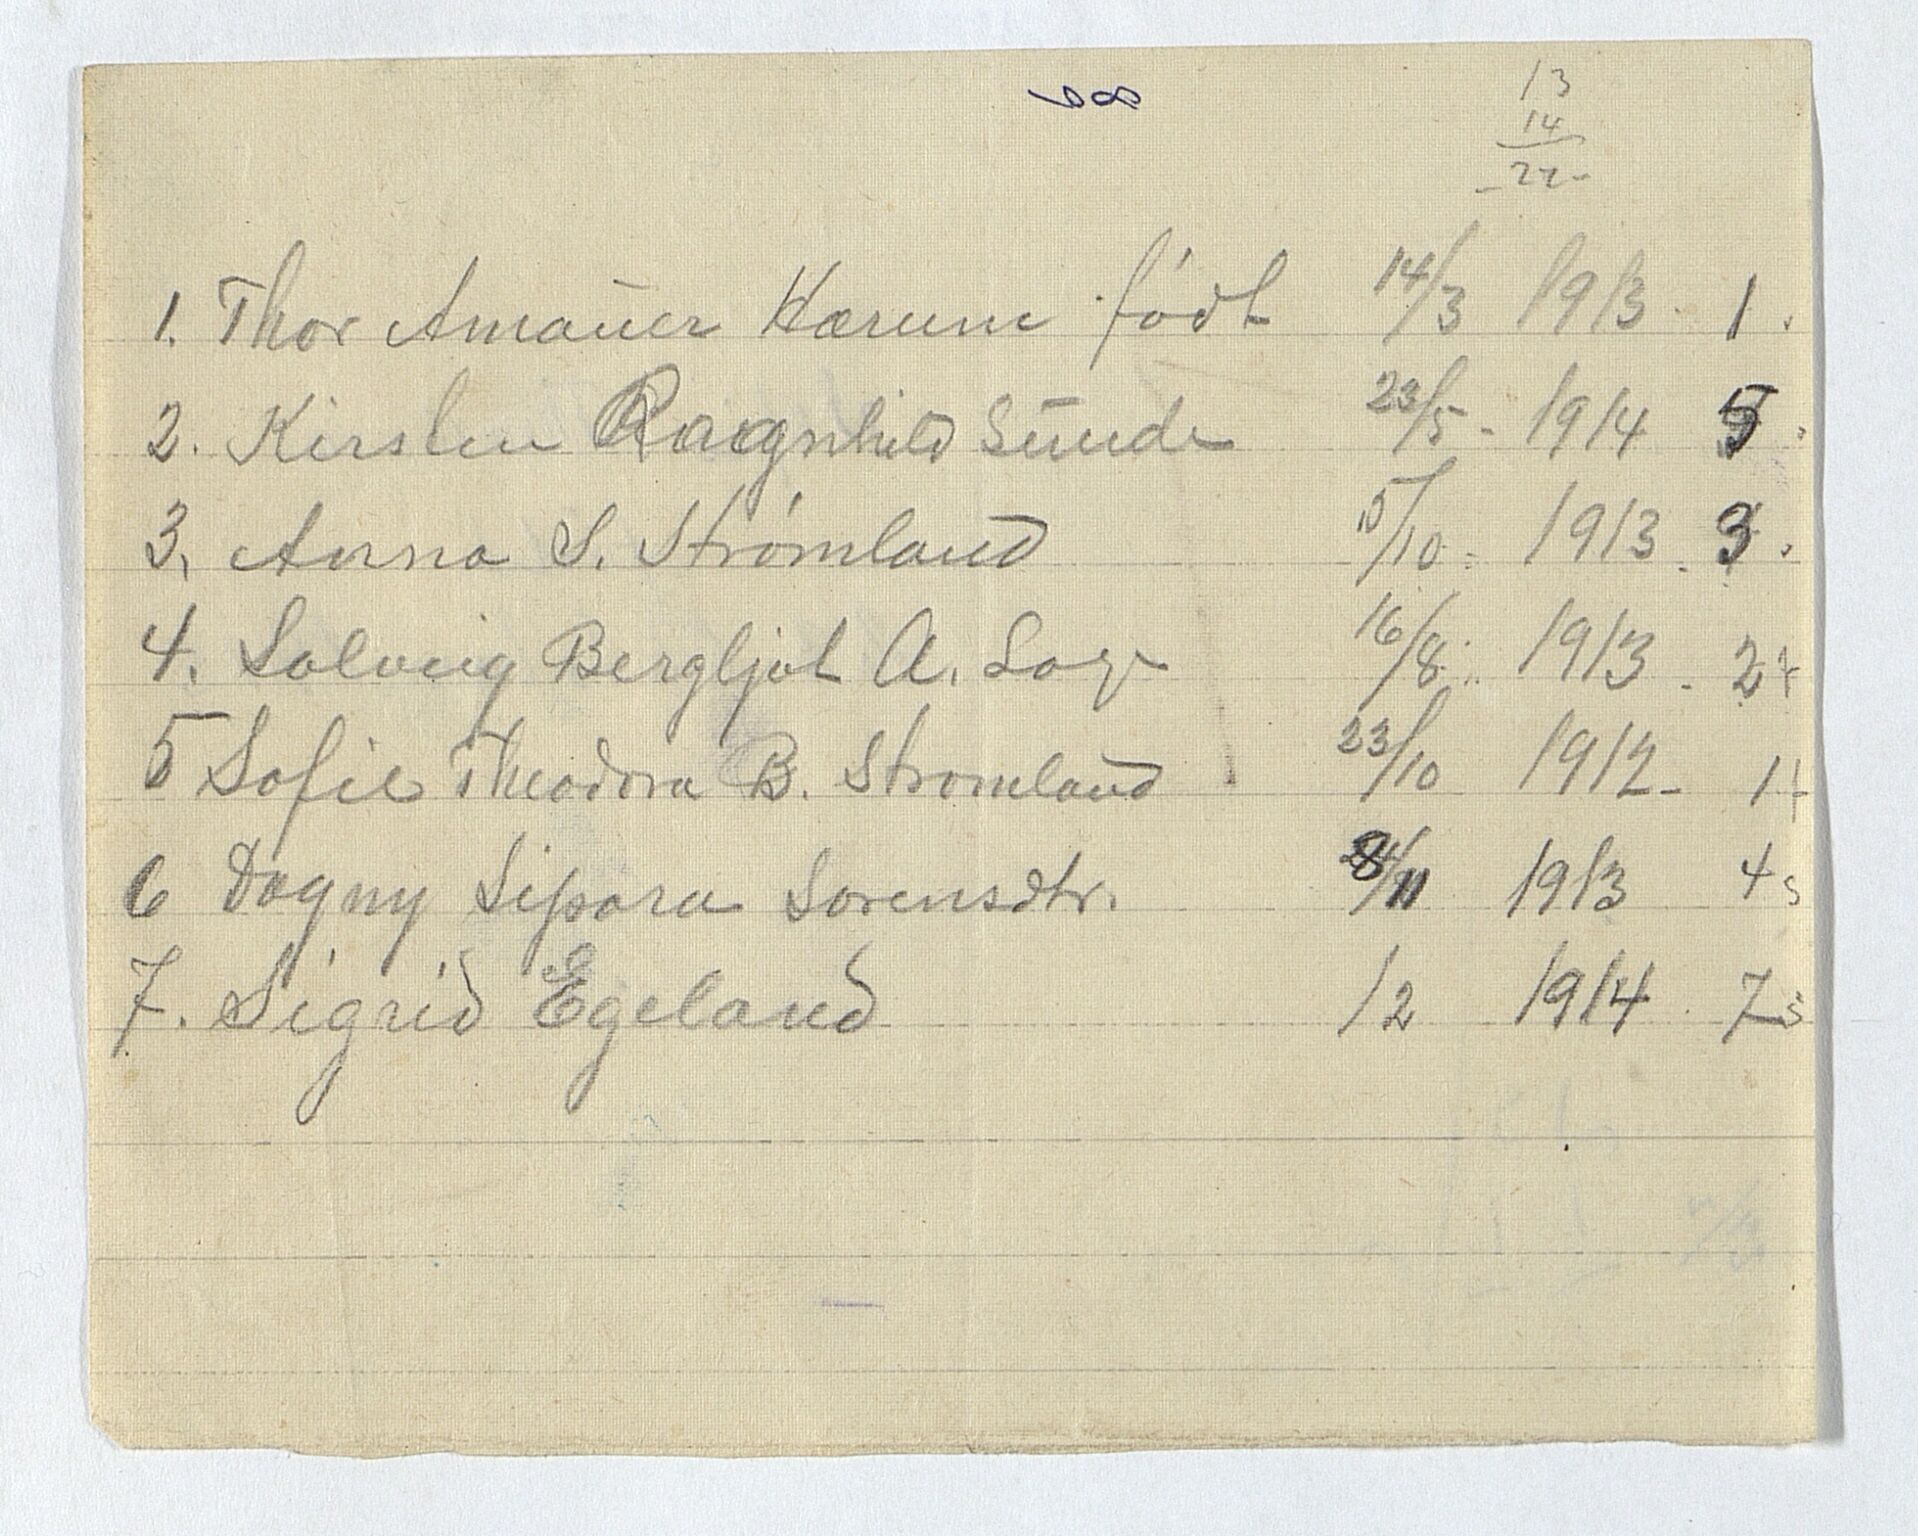 13
14
27
1. Thor Amauer Hærum født 14/3 1913. 1.
2. Kirsten Ragnhild Sunde 23/5 - 1914 5.
3. Anna S. Strømland 15/10 - 1913. 3.
4. Solveig Bergljot A. 16/8 1913. 2
5 Sofie Theodora B. Stromland 23/10 1912 - 1
6 Dagny Sipora Sorensdtr. /11 1913 4
7. Sigrid Egeland /2 1914. 7